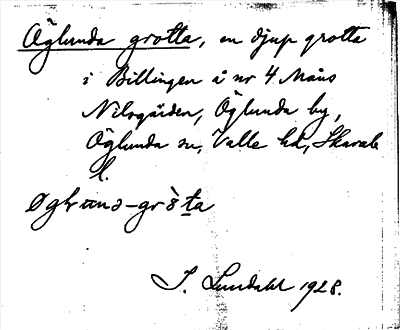 Öglunda grotta, en djup grotta
i Billingen å nr 4 Måns
Nilsgården, Öglunda by,
Öglunda sn, Valle hd, Skarab.
l.
I. Lundahl 1928.